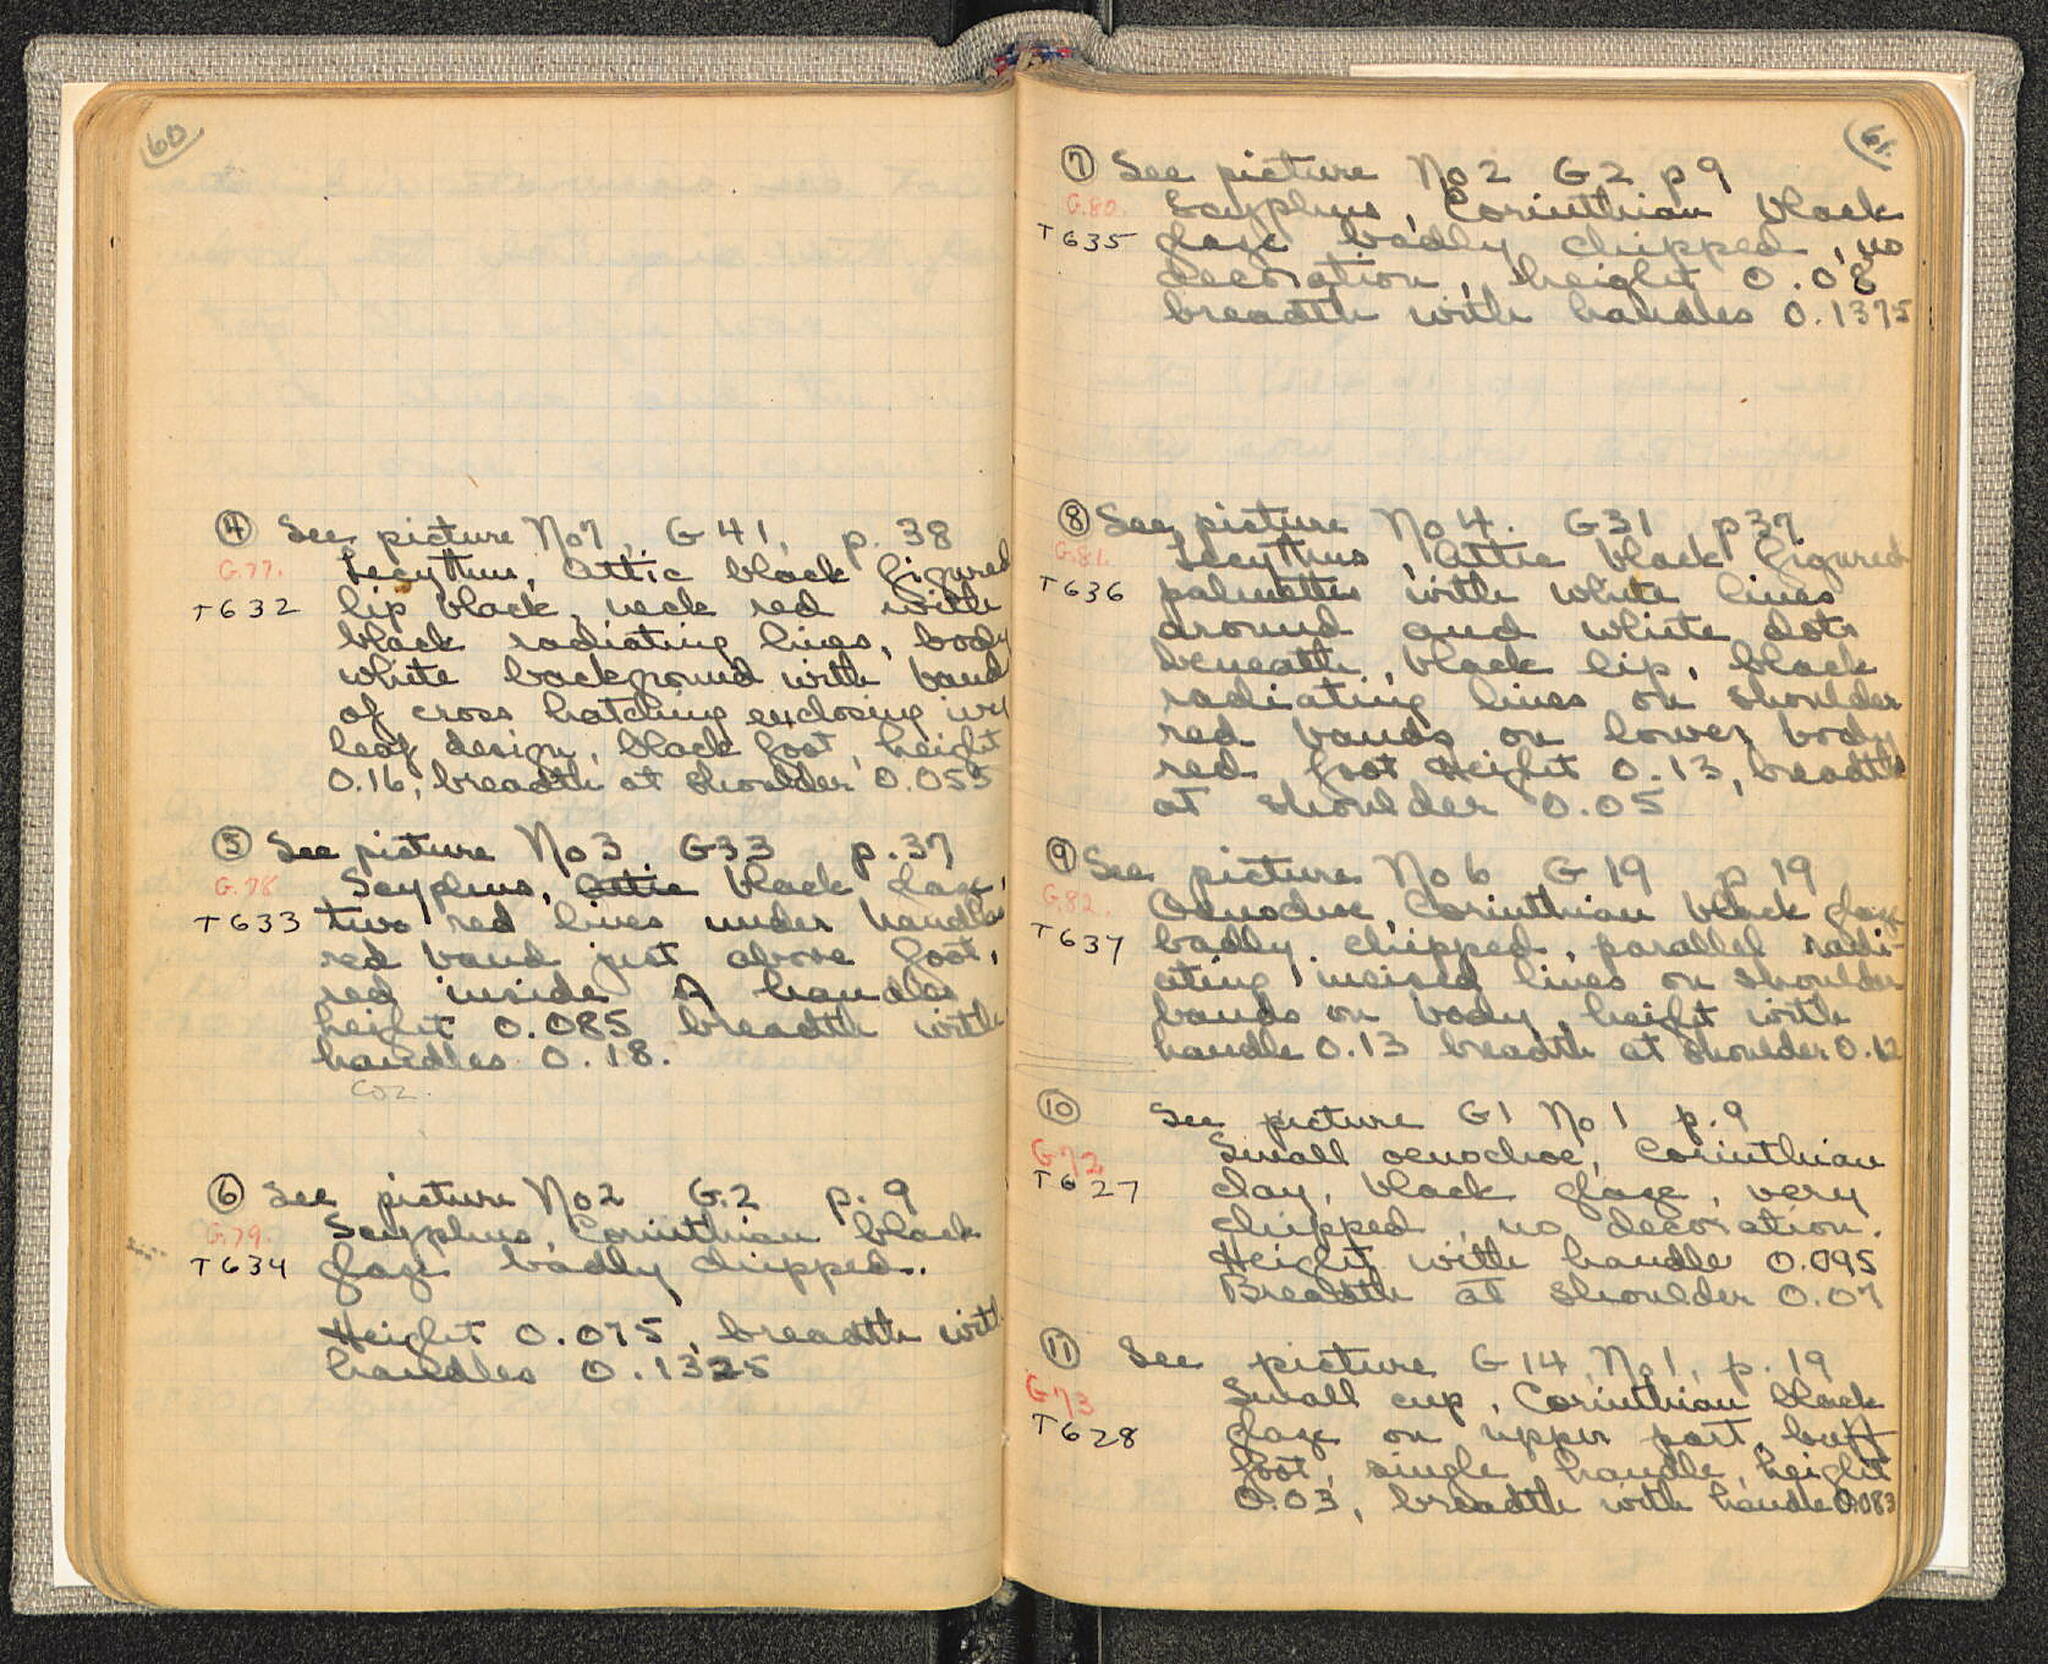 60
④ See picture No 7, G 41, p. 38
G.77. Lecythus, Attic black figured
T632 lip black, neck red with
black radiating lines, body
white background with band
of cross hatching enclosing ivy
leaf design, black foot, height
0.16, breadth at shoulder 0.055
⑤ See picture No 3, G33 p. 37
G.78 Scyphus, Attic black glaze,
T633 two red lines under handles
red band just above foot,
red inside of handles
height 0.085 breadth with
handles 0.18.
⑥ See picture No 2 G.2 p. 9
G.79. Scyphus, Corinthian black
T634 glaze badly chipped.
Height 0.075, breadth with
handles 0.1325
61.
⑦ See picture No 2 G 2 p 9
G.80. Scyphus, Corinthian black
T635 glaze badly chipped, no
decoration, height 0.08
breadth with handles 0.1375
⑧ See picture No 4. G31 p 37
G.81. Lecythus, Attic black figured
T636 palmettes with white lines
around and white dots
beneath, black lip, black
radiating lines on shoulder
red bands on lower body
red foot Height 0.13, breadth
at shoulder 0.05
⑨ See picture No 6 G 19 p 19
G.82. Oenochoe, Corinthian black glaze
T637 badly chipped, parallel radi-
ating incised lines on shoulder
bands on body, height with
handle 0.13 breadth at shoulder 0.12
⑩ See picture G1 No 1 p. 9
G72 Small oenochoe, Corinthian
T627 clay, black glaze, very
chipped, no decoration.
Height with handle 0.095
Breadth at shoulder 0.07
⑪ See picture G 14, No 1, p. 19
G73 Small cup, Corinthian black
T628 glaze on upper part, buff
foot, single handle, height
0.03, breadth with handle 0.083